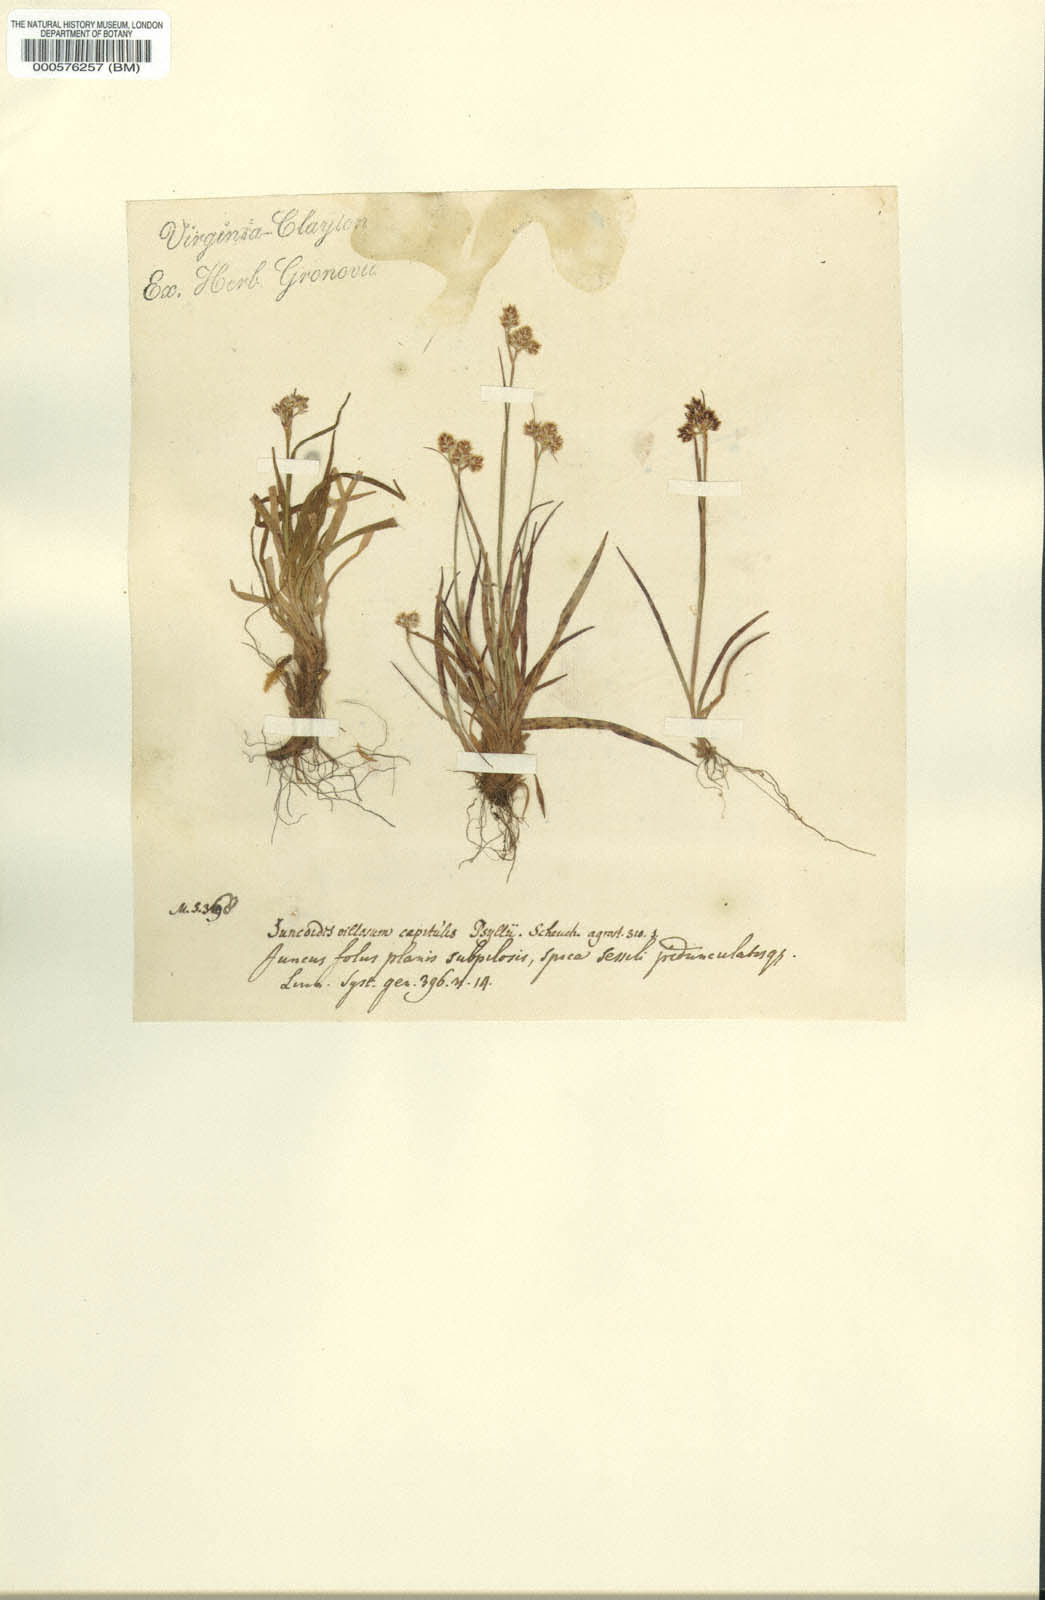 THE NATURAL HISTORY MUSEUM, LONDON
DEPARTMENT OF BOTANY
000576257 (BM)
Virginia-Clayton
Ex. Herb. Gronovii
Juncoides villosum capitulis Psyllii. Scheuch. agrost. 310.
Juncus foliis planis subpilosis, spica sessili pedunculatisq;.
Linn. Syst. gen. 396. n. 14.